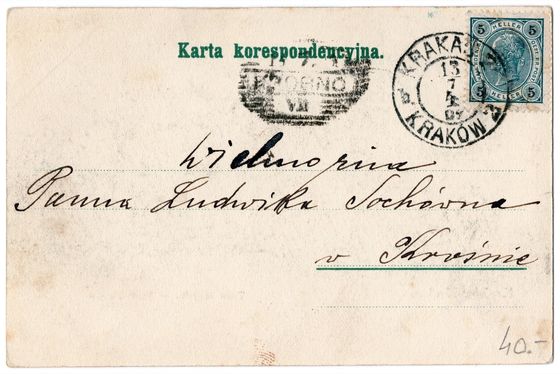 Karta korespondencyjna.
5 HELLER 5
5 HELLER 5
KRAKAU
13
7
KRAKÓW 2
VII
Wielmożna
Panna Ludwika Sochówna
w Krośnie
40.-